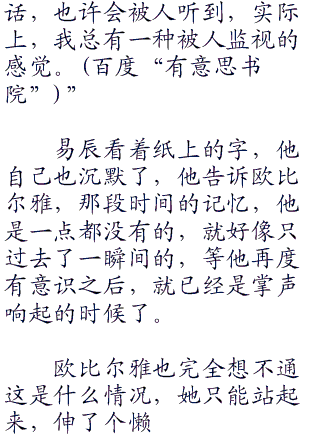 话，也许会被人听到，实际
上，我总有一种被人监视的
感觉。(百度“有意思书
院”)”
易辰看着纸上的字，他
自己也沉默了，他告诉欧比
尔雅，那段时间的记忆，他
是一点都没有的，就好像只
过去了一瞬间的，等他再度
有意识之后，就已经是掌声
响起的时候了。
欧比尔雅也完全想不通
这是什么情况，她只能站起
来，伸了个懒